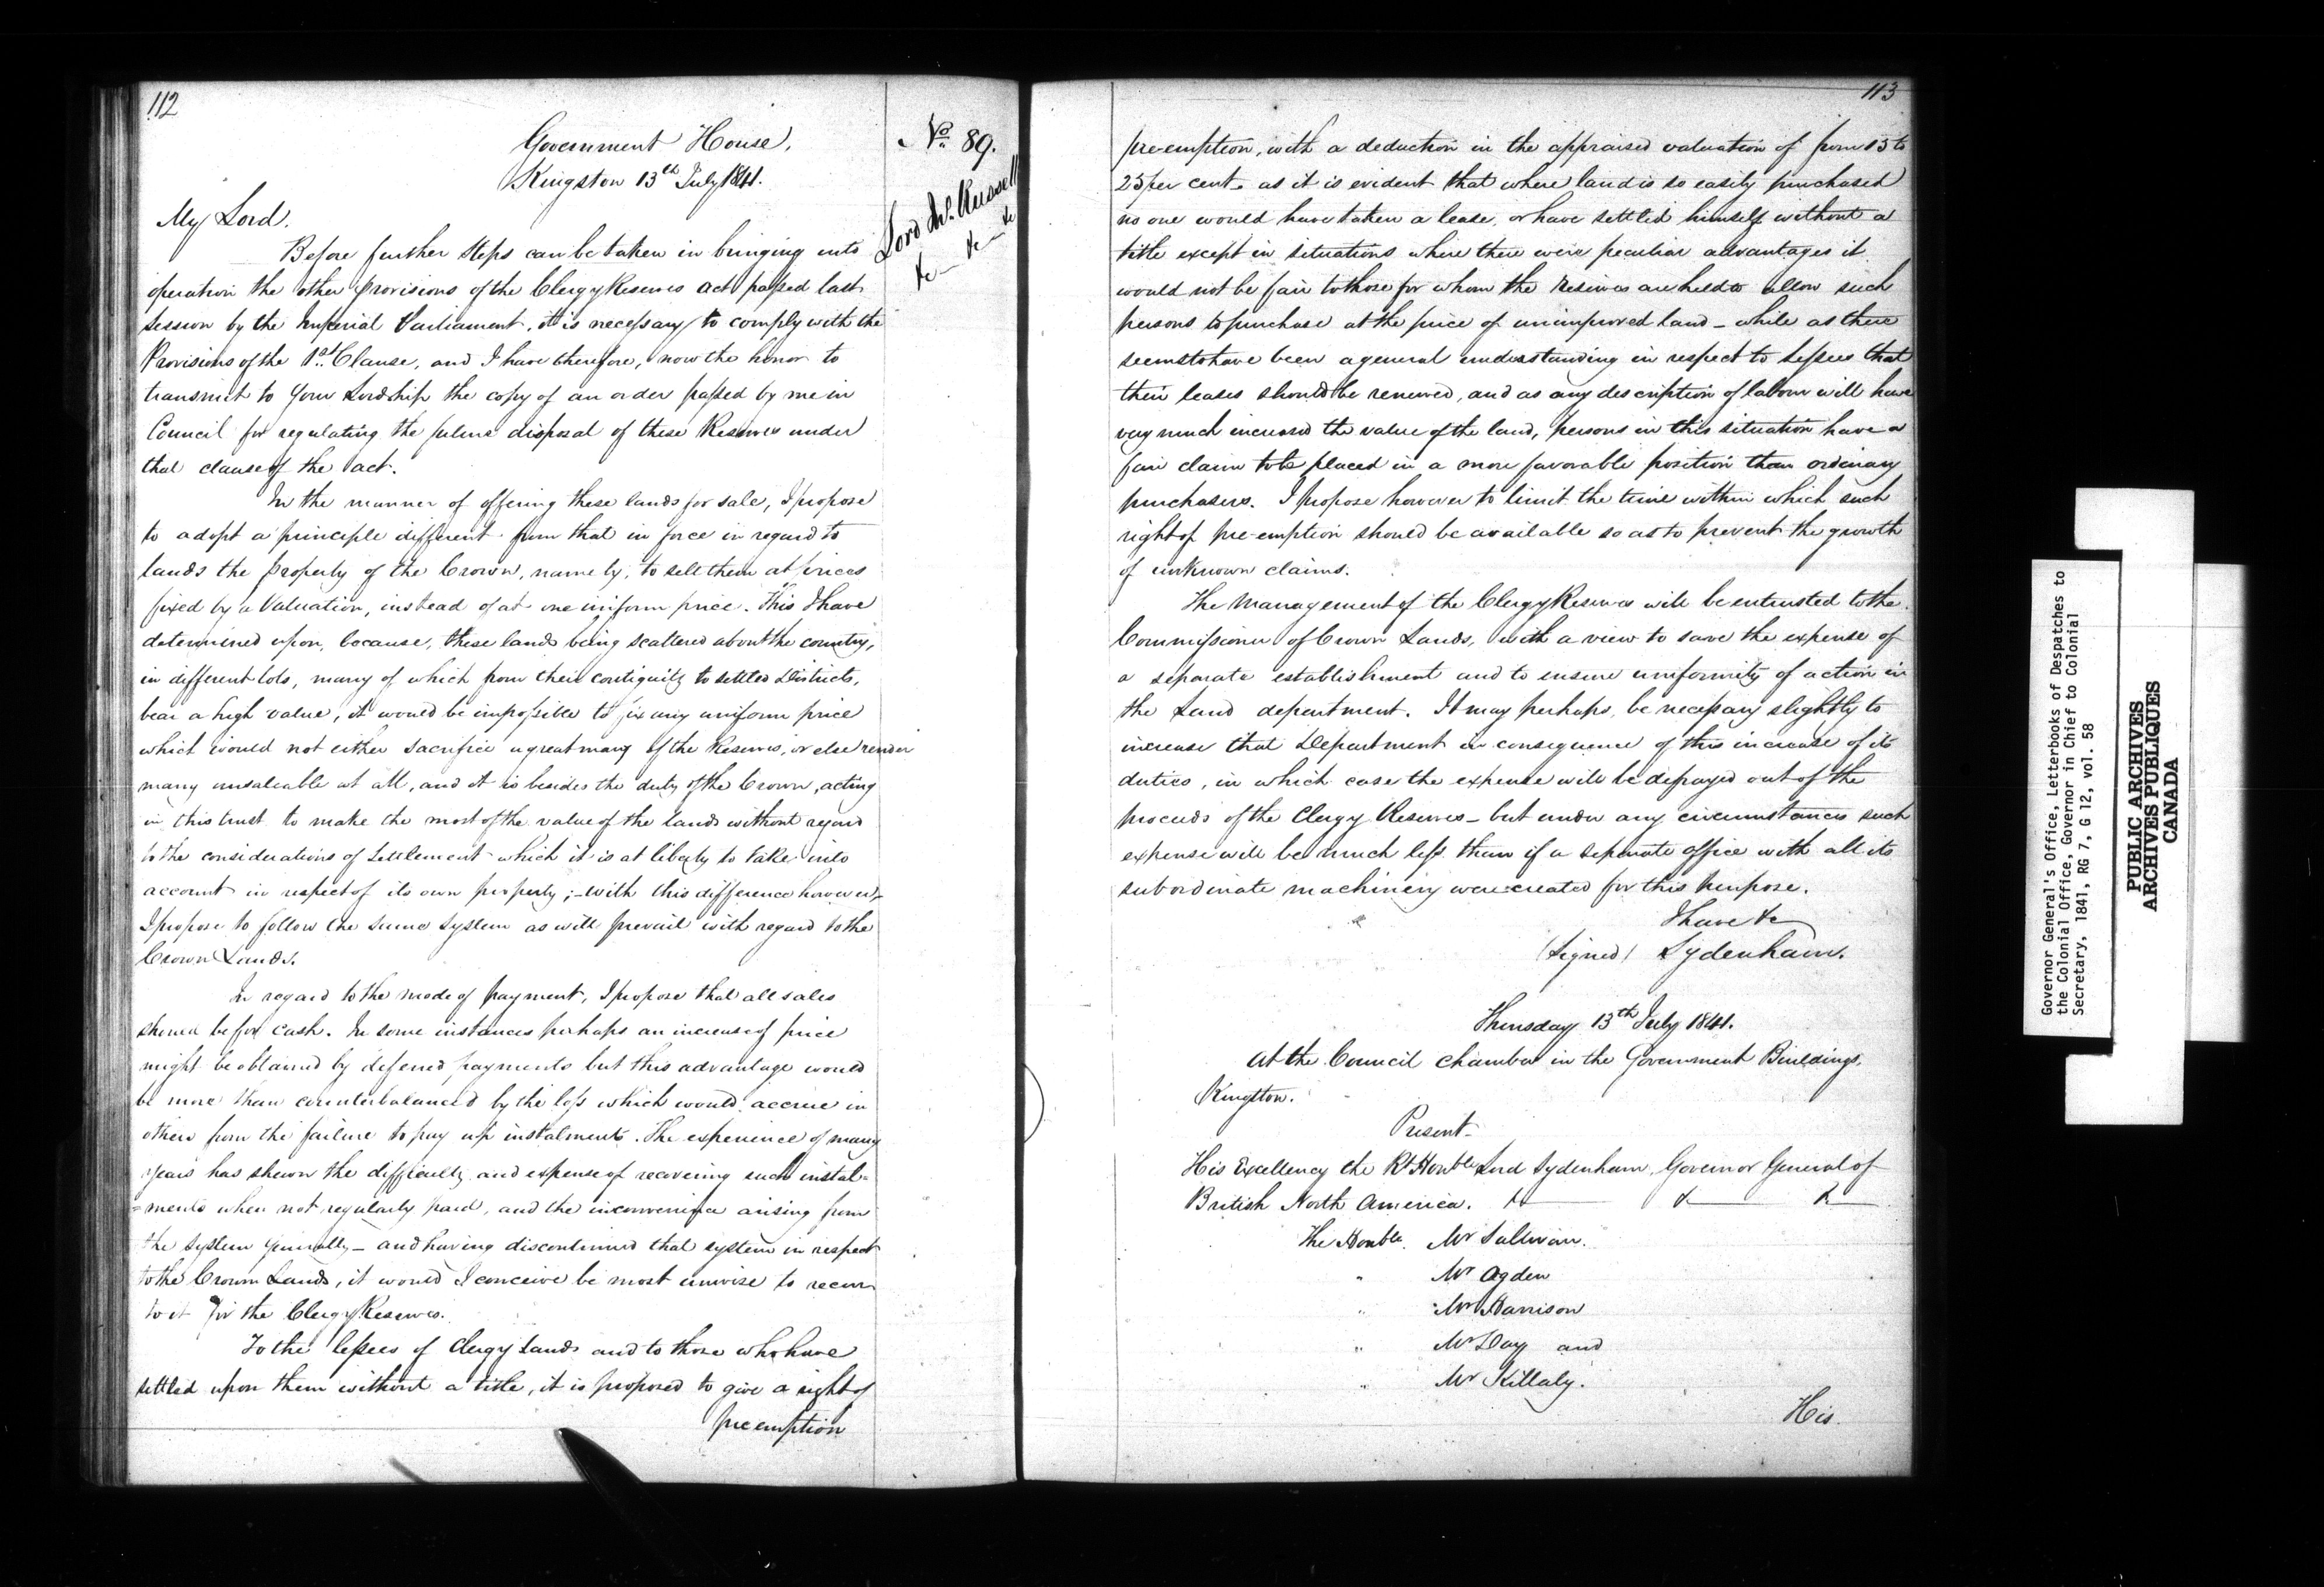 112
Government House,
Kingston 13th July 1841.
No. 89.
Lord Jno. Russell
&c — &c — &c
My Lord.
Before further steps can be taken in bringing into
operation the other provisions of the Clergy Reserves act passed last
session by the Imperial Parliament, it is necessary to comply with the
Provisions of the 1st Clause, and I have therefore, now the honor to
transmit to your Lordship the copy of an order passed by me in
Council for regulating the future disposal of these Reserves under
that clause of the act.
In the manner of offering these lands for sale, I propose
to adopt a principle different from that in force in regard to
lands the property of the Crown, namely, to sell them at prices
fixed by a Valuation, instead of at one uniform price. This I have
determined upon, because, these lands being scattered about the country,
in different lots, many of which from their contiguity to settled Districts,
bear a high value, it would be impossible to fix any uniform price
which would not either sacrifice a great many of the Reserves, or else render
many unsaleable at all, and it is besides the duty of the Crown, acting
in this trust to make the most of the value of the lands without regard
to the considerations of Settlement which it is at liberty to take into
account in respect of its own property; — with this difference however,
I propose to follow the same system as will prevail with regard to the
Crown Lands.
In regard to the mode of payment, I propose that all sales
should be for cash. In some instances perhaps an increase of price
might be obtained by deferred payments but this advantage would
be more than counterbalanced by the loss which would accrue in
others from the failure to pay up instalments. The experience of many
years has shewn the difficulty and expense of recovering such instal=
=ments when not regularly paid, and the inconvenience arising from
the system generally — and having discontinued that system in respect
to the Crown Lands, it would I conceive be most unwise to recur
to it for the Clergy Reserves.
To the lessees of Clergy Lands and to those who have
settled upon them without a title, it is proposed to give a right of
preemption
113
pre-emption, with a deduction in the appraised valuation of from 15 to
25 per cent. as it is evident that where land is so easily purchased
no one would have taken a lease, or have settled himself without a
title except in situations where there were peculiar advantages it
would not be fair to those for whom the Reserves are held to allow such
persons to purchase at the price of unimproved land — while as there
seems to have been a general understanding in respect to lessees that
their leases should be renewed, and as any description of labour will have
very much increased the value of the land, persons in this situation have a
fair claim to be placed in a more favorable position than ordinary
purchasers. I propose however to limit the time within which such
right of pre-emption should be available so as to prevent the growth
of unknown claims.
The Management of the Clergy Reserves will be entrusted to the
Commissioner of Crown Lands, with a view to save the expense of
a separate establishment and to ensure uniformity of action in
the Land department. It may perhaps, be necessary slightly to
increase that Department in consequence of this increase of its
duties, in which case the expense will be defrayed out of the
proceeds of the Clergy Reserves — but under any circumstances such
expense will be much less than if a separate office with all its
subordinate machinery were created for this purpose.
I have &c
(Signed) Sydenham.
Thursday 13th July 1841.
At the Council chamber in the Government Buildings,
Kingston.
Present —
His Excellency the Rt Honble Lord Sydenham, Governor General of
British North America. &c — &c — &c
The Honble. Mr Sullivan.
" Mr Ogden
" Mr Harrison
" Mr Day and
" Mr Killaly.
His
Governor General's Office, Letterbooks of Despatches to
the Colonial Office, Governor in Chief to Colonial
Secretary, 1841, RG 7, G 12, vol. 58
PUBLIC ARCHIVES
ARCHIVES PUBLIQUES
CANADA